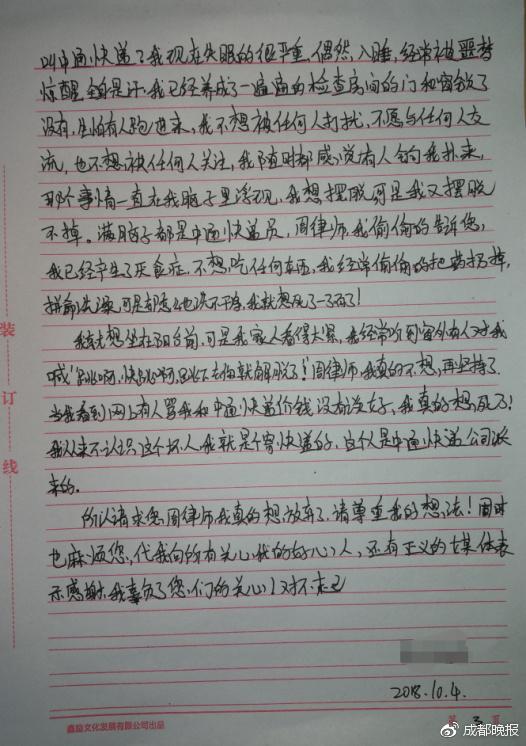 叫中通快递了我现在失眠的很严重,偶然入睡,经常被噩梦
惊醒全身是汗.我已经养成了一遍遍的检查房间的门和窗锁了
没有,生怕有人跑进来,我不想被任何人打扰,不愿与任何人交
流,也不想被任何人关注,我随时都感觉有人向我扑来,
那个事情一直在我脑子里浮现,我想摆脱可是我又摆脱
不掉。满脑子都是中通快递员,周律师,我偷偷的告诉您,
我已经产生了厌食症,不想吃任何东西,我经常偷偷的把药扔掉,
拼命洗澡,可是却怎么也洗不干净,我就想死了一了百了!
我就想坐在阳台前,可是我家人看得太紧,我经常听到窗外有人对我
喊"跳啊,快跳啊,跳下去你就解脱了!周律师,我真的不想再坚持了.
当我看到网上有人骂我和中通快递价钱没有谈好,我真的想死了!
我从来不认识这个坏人,我就是个寄快递的,这个人是中通快递公司派
来的.
所以请求您周律师我真的想放弃了,请尊重我的想法!同时
也麻烦您,代我向所有关心我的好心人,还有正义的媒体表
示感谢.我辜负了您们的关心!对不起
2018.10.4.
装
订
线
鑫焱文化发展有限公司出品
第 3 页
@成都晚报